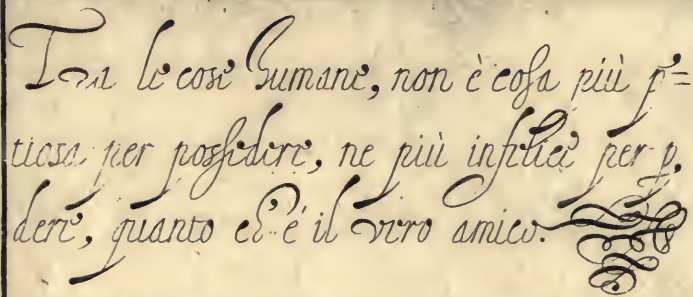 Tra le cose humane, non è cosa più p̄=
tiosa per possedere, ne più infelice per p̱
dere, quanto ch'è il vero amico.